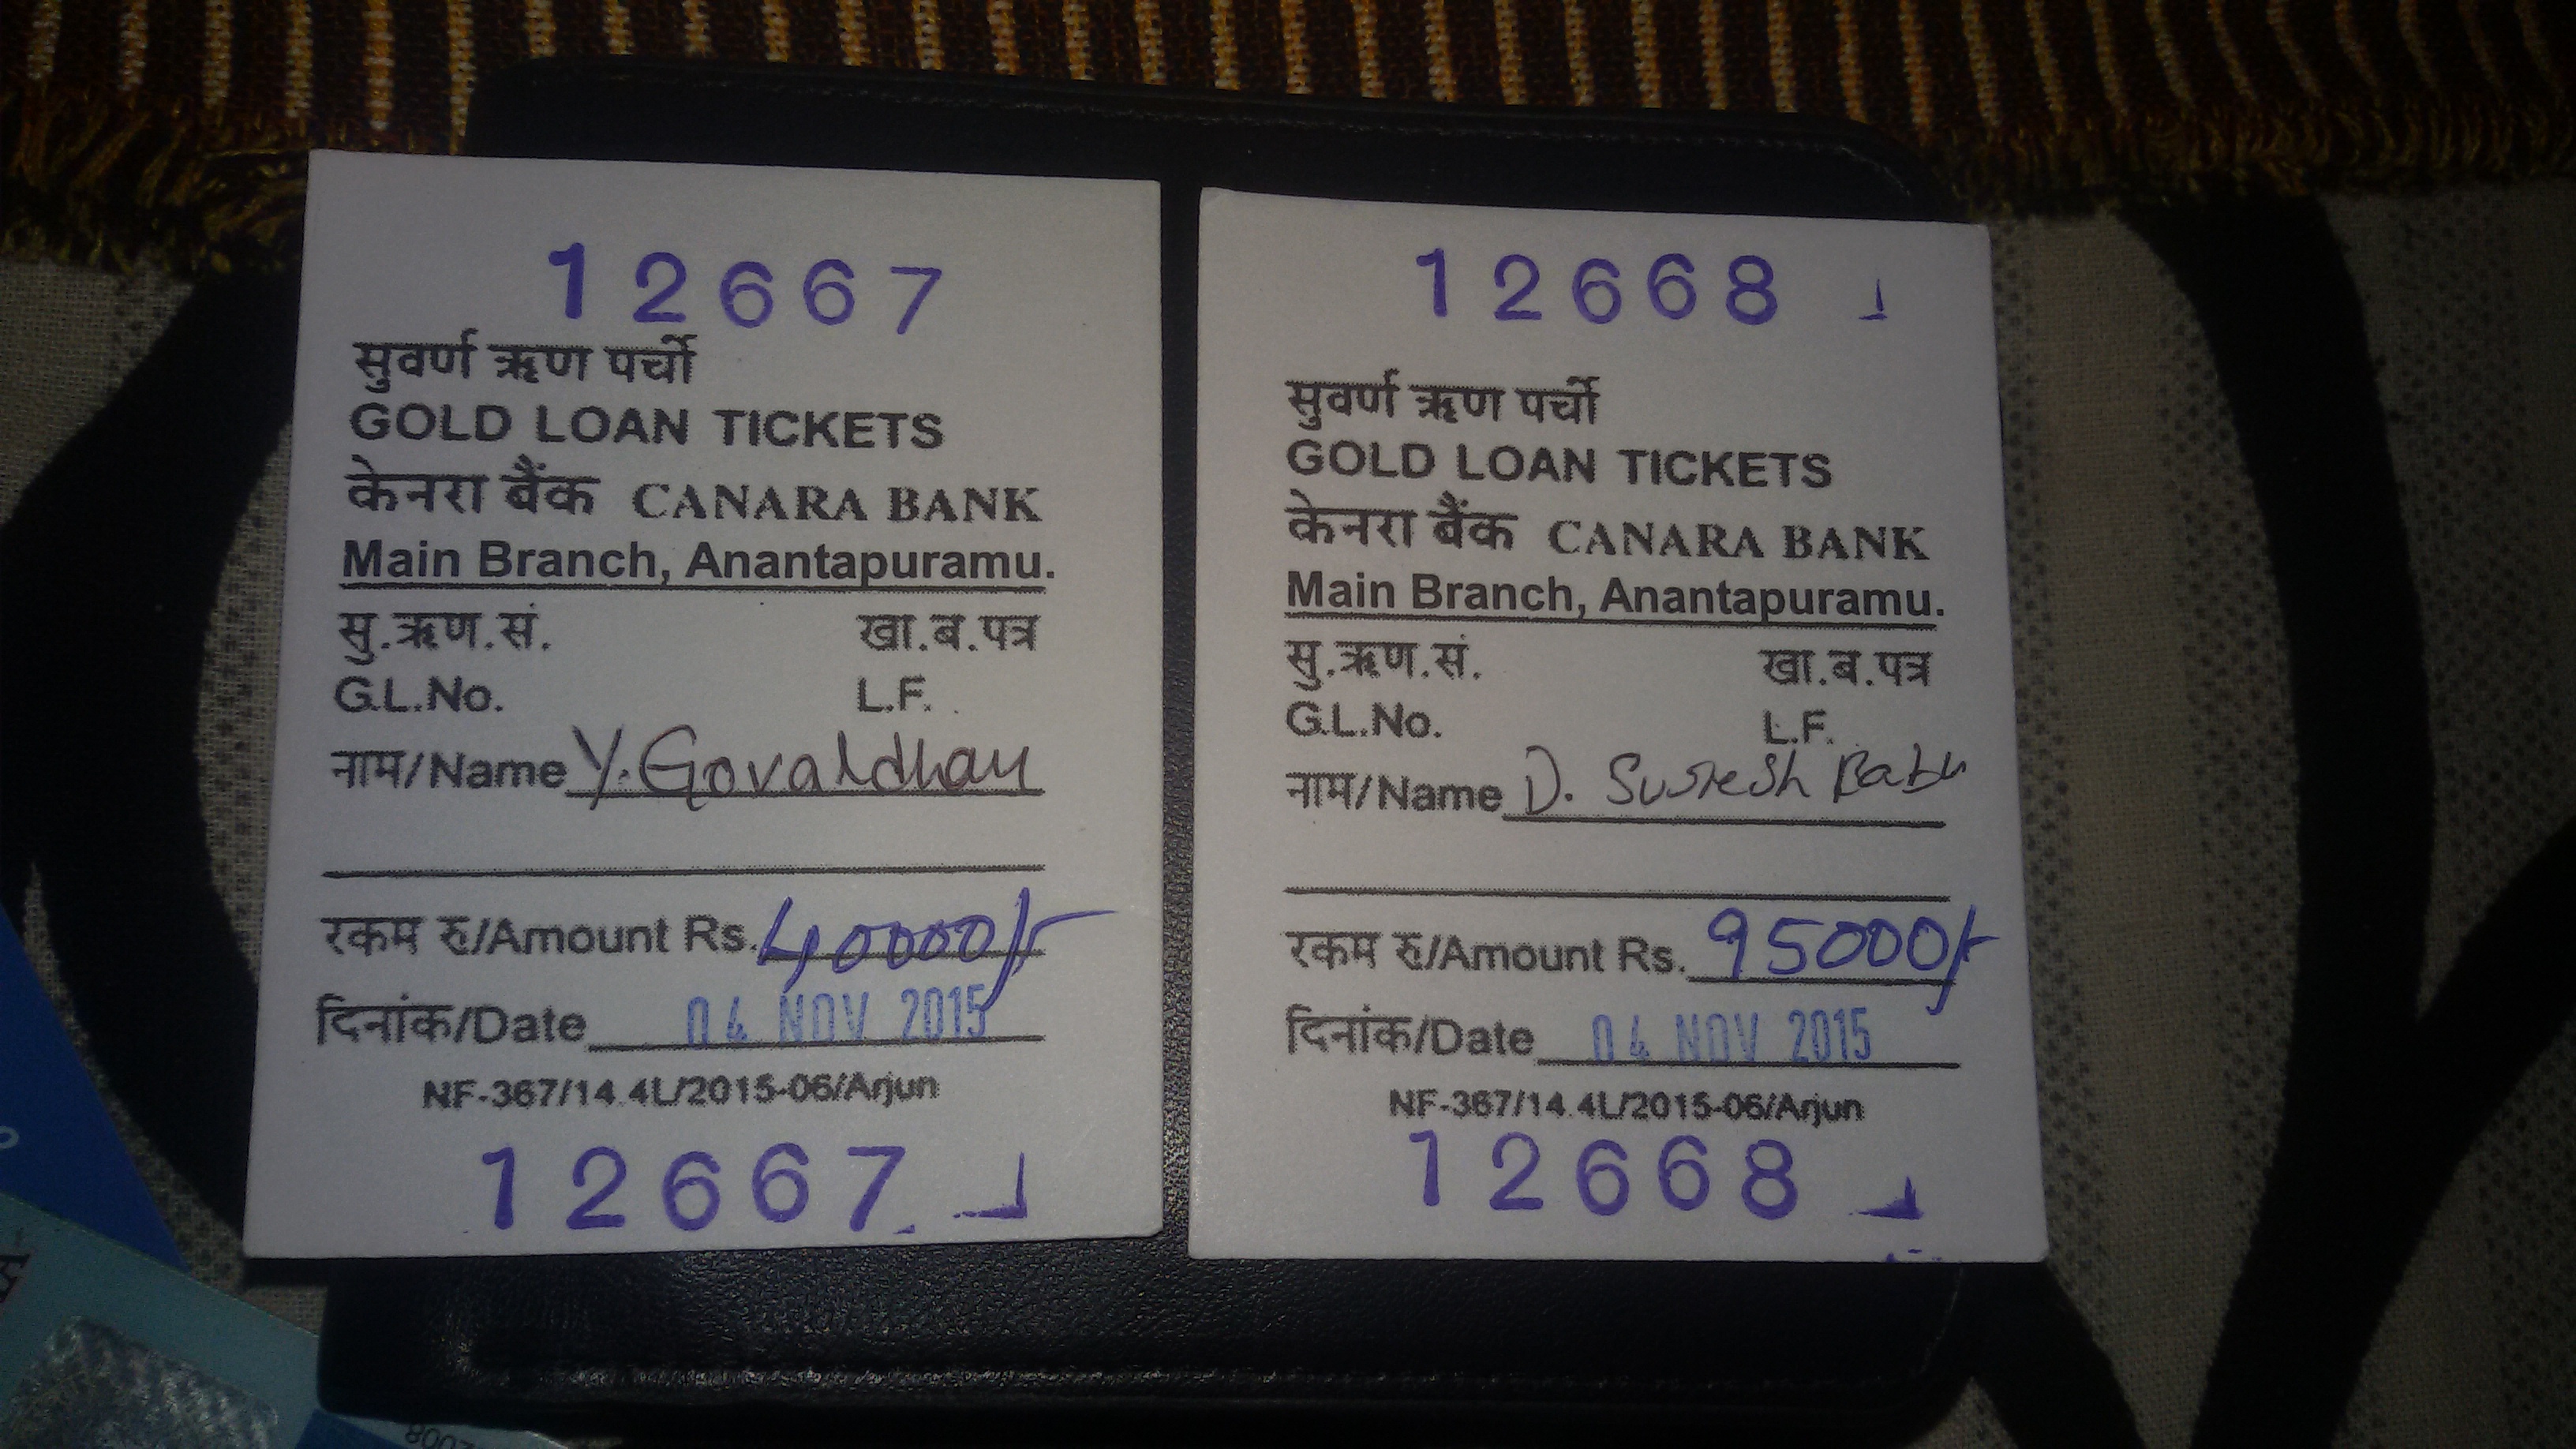 12667
सुवर्ण ऋण पर्ची
GOLD LOAN TICKETS
केनरा बैंक CANARA BANK
Main Branch, Anantapuramu.
सु.ऋण.सं. खा.ब.पत्र
G.L.No. L.F.
नाम/Name Y. Govardhan
रकम रु/Amount Rs. 40000/-
दिनांक/Date 04 NOV 2015
NF-367/14.4L/2015-06/Arjun
12667
12668
सुवर्ण ऋण पर्ची
GOLD LOAN TICKETS
केनरा बैंक CANARA BANK
Main Branch, Anantapuramu.
सु.ऋण.सं. खा.ब.पत्र
G.L.No. L.F.
नाम/Name D. Suresh Babu
रकम रु/Amount Rs. 95000/-
दिनांक/Date 04 NOV 2015
NF-367/14.4L/2015-06/Arjun
12668